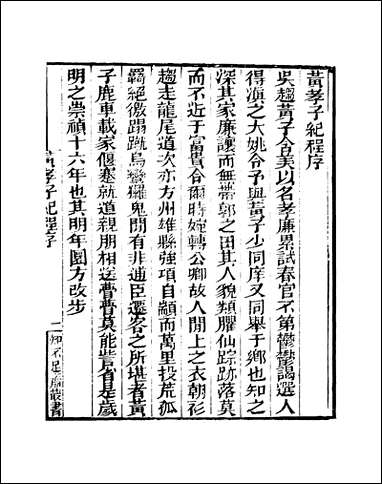 黃孝子紀程序
吳趨黃子含美以名孝廉累試春官不第鬱鬱謁選人
得滇之大姚令予與黃子少同庠又同舉于鄉也知之
深其家廉讓而無帶郭之田其人貌類臞仙踪跡落莫
而不近于富貴合爾時婉轉公卿故人閒上之衣朝衫
趨走龍尾道次亦方州雄縣強項自顧而萬里投荒孤
羈絕徼蹋蹴烏蠻玀鬼閒有非逋臣遷客之所堪者黃
子鹿車載家偃蹇就道親朋相送瞢瞢莫能訾省是歲
明之崇禎十六年也其明年圜方改步
黃孝子紀程序
一 知不足齋叢書